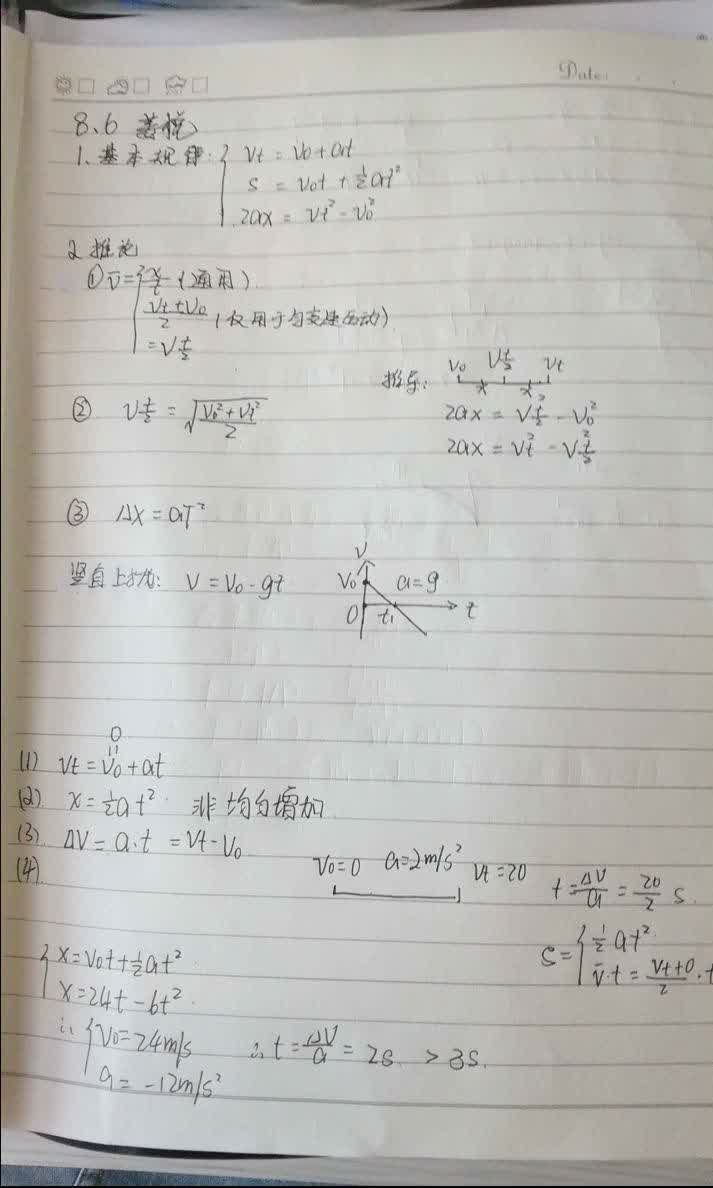 Date:
8.6
1. 基本规律: { Vt = V0 + at
S = V0t + 1/2at²
2ax = Vt² - V0²
2 推论
① v̄ = { x/t (通用)
(Vt + V0)/2 (仅用于匀变速运动)
= V t/2
推导: V0 V t/2 Vt
x x
② V t/2 = √((V0² + Vt²)/2)
2ax = V t/2² - V0²
2ax = Vt² - V t/2²
③ Δx = aT²
竖直上抛: V = V0 - gt
V V0 a = g 0 t1 t
0
(1) Vt = V0 + at
(2) x = 1/2at² 非均匀增加
(3) ΔV = a·t = Vt - V0
(4)
V0 = 0 a = 2m/s² Vt = 20 t = ΔV/a = 20/2 s.
S = { 1/2at²
v̄·t = (Vt + 0)/2 · t
{ x = V0t + 1/2at²
x = 24t - 6t²
∴ { V0 = 24m/s
a = -12m/s²
∴ t = ΔV/a = 2s > 3s.